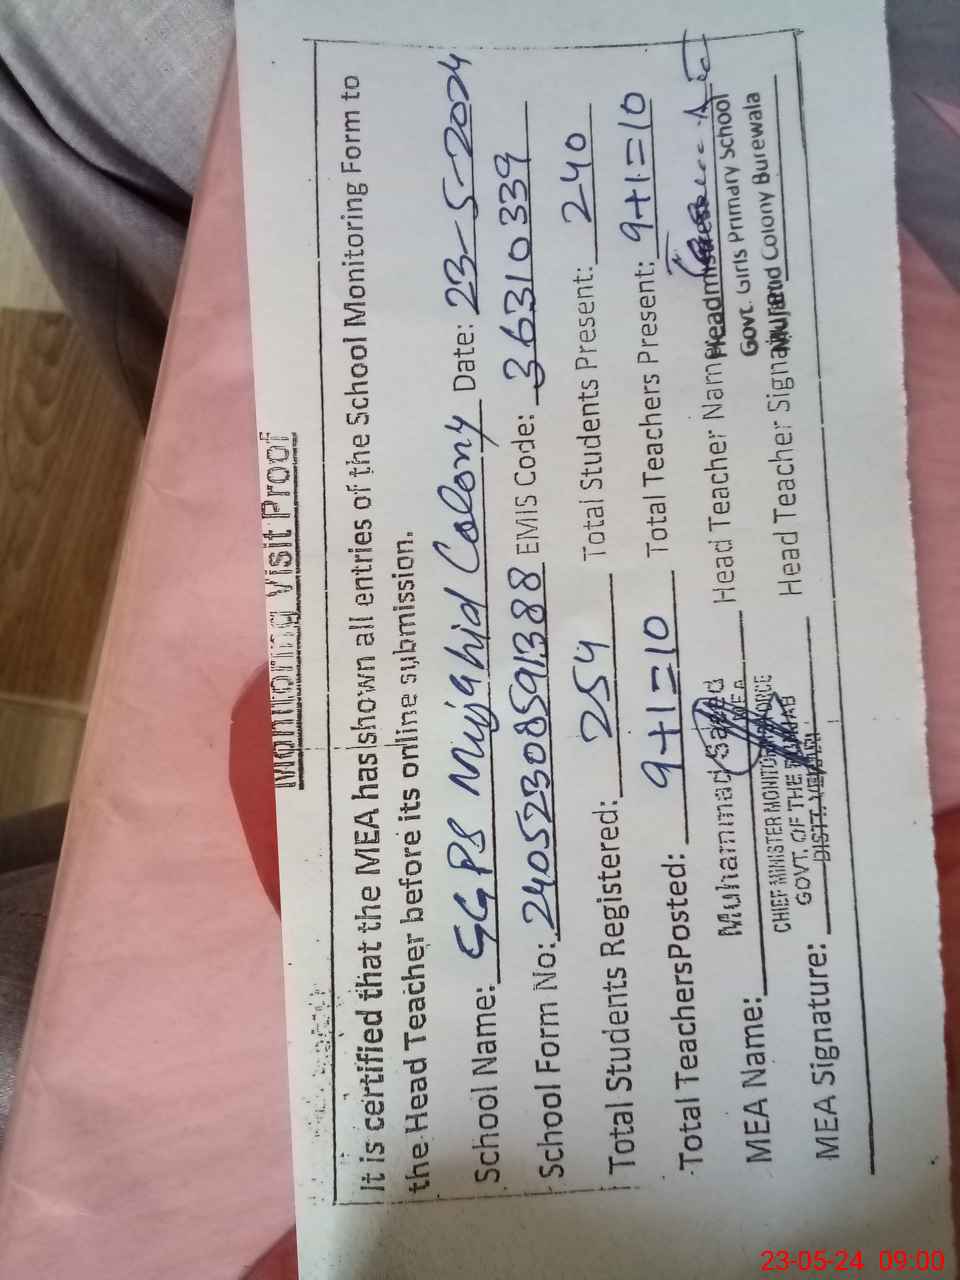 Monitoring Visit Proof
It is certified that the MEA has shown all entries of the School Monitoring Form to
the Head Teacher before its online submission.
School Name: GGPS Mujahid Colony Date: 23-5-2024
School Form No: 24052308591388 EMIS Code: 36310339
Total Students Registered: 254 Total Students Present: 240
Total TeachersPosted: 9+1=10 Total Teachers Present: 9+1=10
MEA Name: Muhammad Saeed Head Teacher Name: Headmistress
MEA
CHIEF MINISTER MONITORING FORCE Govt. Girls Primary School
GOVT. OF THE PUNJAB Mujahid Colony Burewala
DISTT. VEHARI
MEA Signature: Head Teacher Signature:
23-05-24 09:00